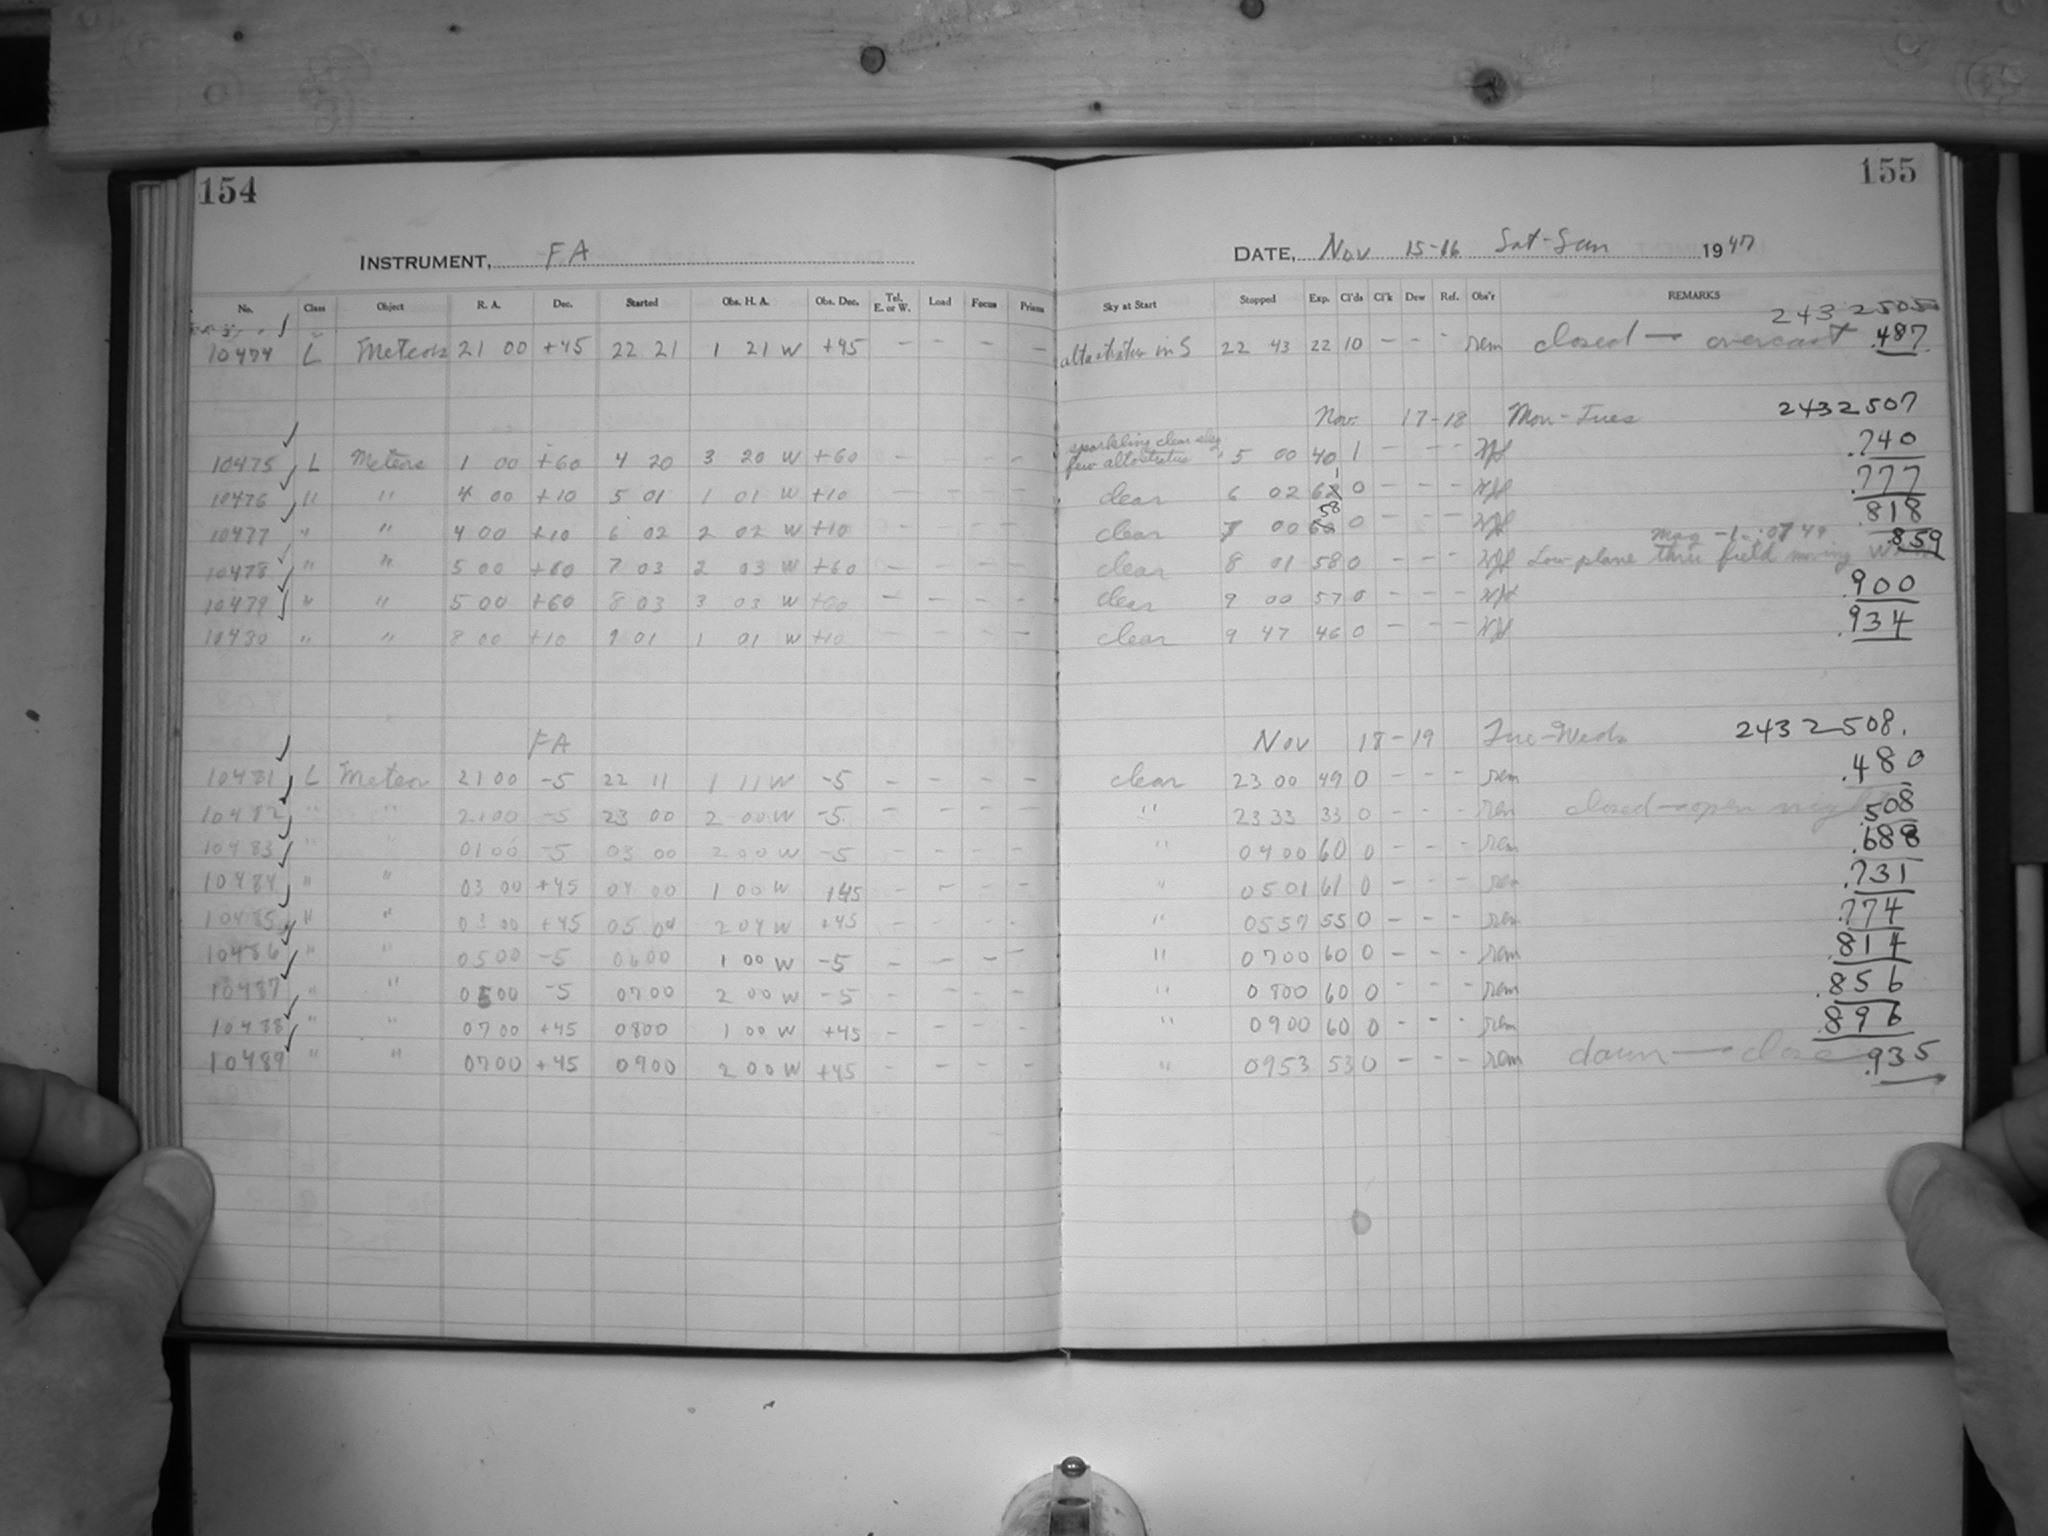 154
155
INSTRUMENT, FA
DATE, Nov 15-16 Sat-Sun 1947
No. Class Object R. A. Dec. Started Obs. H. A. Obs. Dec. Tel. E. or W. Load Focus Prisms Sky at Start Stopped Exp. Cl'ds Cl'k Dew Ref. Obs'r REMARKS
2432505
10474 L Meteors 21 00 +45 22 21 1 21 W +45 - - - - altostratus in S 22 43 22 10 - - - rem closed — overcast .487
Nov. 17-18 Mon-Tues 2432507
sparkling clear sky
10475 L Meteors 1 00 +60 4 20 3 20 W +60 - - - - few altostratus 5 00 40 1 - - - .740
10476 " " 4 00 +10 5 01 1 01 W +10 - - - - clear 6 02 61 0 - - - .777
10477 " " 4 00 +10 6 02 2 02 W +10 - - - - clear 7 00 58 0 - - - .818
mag -1
10478 " " 5 00 +60 7 03 2 03 W +60 - - - - clear 8 01 58 0 - - - Low plane thru field moving W .859
10479 " " 5 00 +60 8 03 3 03 W +60 - - - - clear 9 00 57 0 - - - .900
10480 " " 8 00 +10 9 01 1 01 W +10 - - - - clear 9 47 46 0 - - - .934
FA Nov 18-19 Tue-Weds 2432508.
10481 L Meteor 21 00 -5 22 11 1 11 W -5 - - - - clear 23 00 49 0 - - - rem .480
10482 " " 21 00 -5 23 00 2 00 W -5 - - - - " 23 33 33 0 - - - rem closed - open night .508
10483 " " 01 00 -5 03 00 2 00 W -5 - - - - " 04 00 60 0 - - - rem .688
10484 " " 03 00 +45 04 00 1 00 W +45 - - - - " 05 01 61 0 - - - rem .731
10485 " " 03 00 +45 05 04 2 04 W +45 - - - - " 05 57 55 0 - - - rem .774
10486 " " 05 00 -5 06 00 1 00 W -5 - - - - " 07 00 60 0 - - - rem .814
10487 " " 05 00 -5 07 00 2 00 W -5 - - - - " 08 00 60 0 - - - rem .856
10488 " " 07 00 +45 08 00 1 00 W +45 - - - - " 09 00 60 0 - - - rem .896
10489 " " 07 00 +45 09 00 2 00 W +45 - - - - " 09 53 53 0 - - - rem dawn — close .935